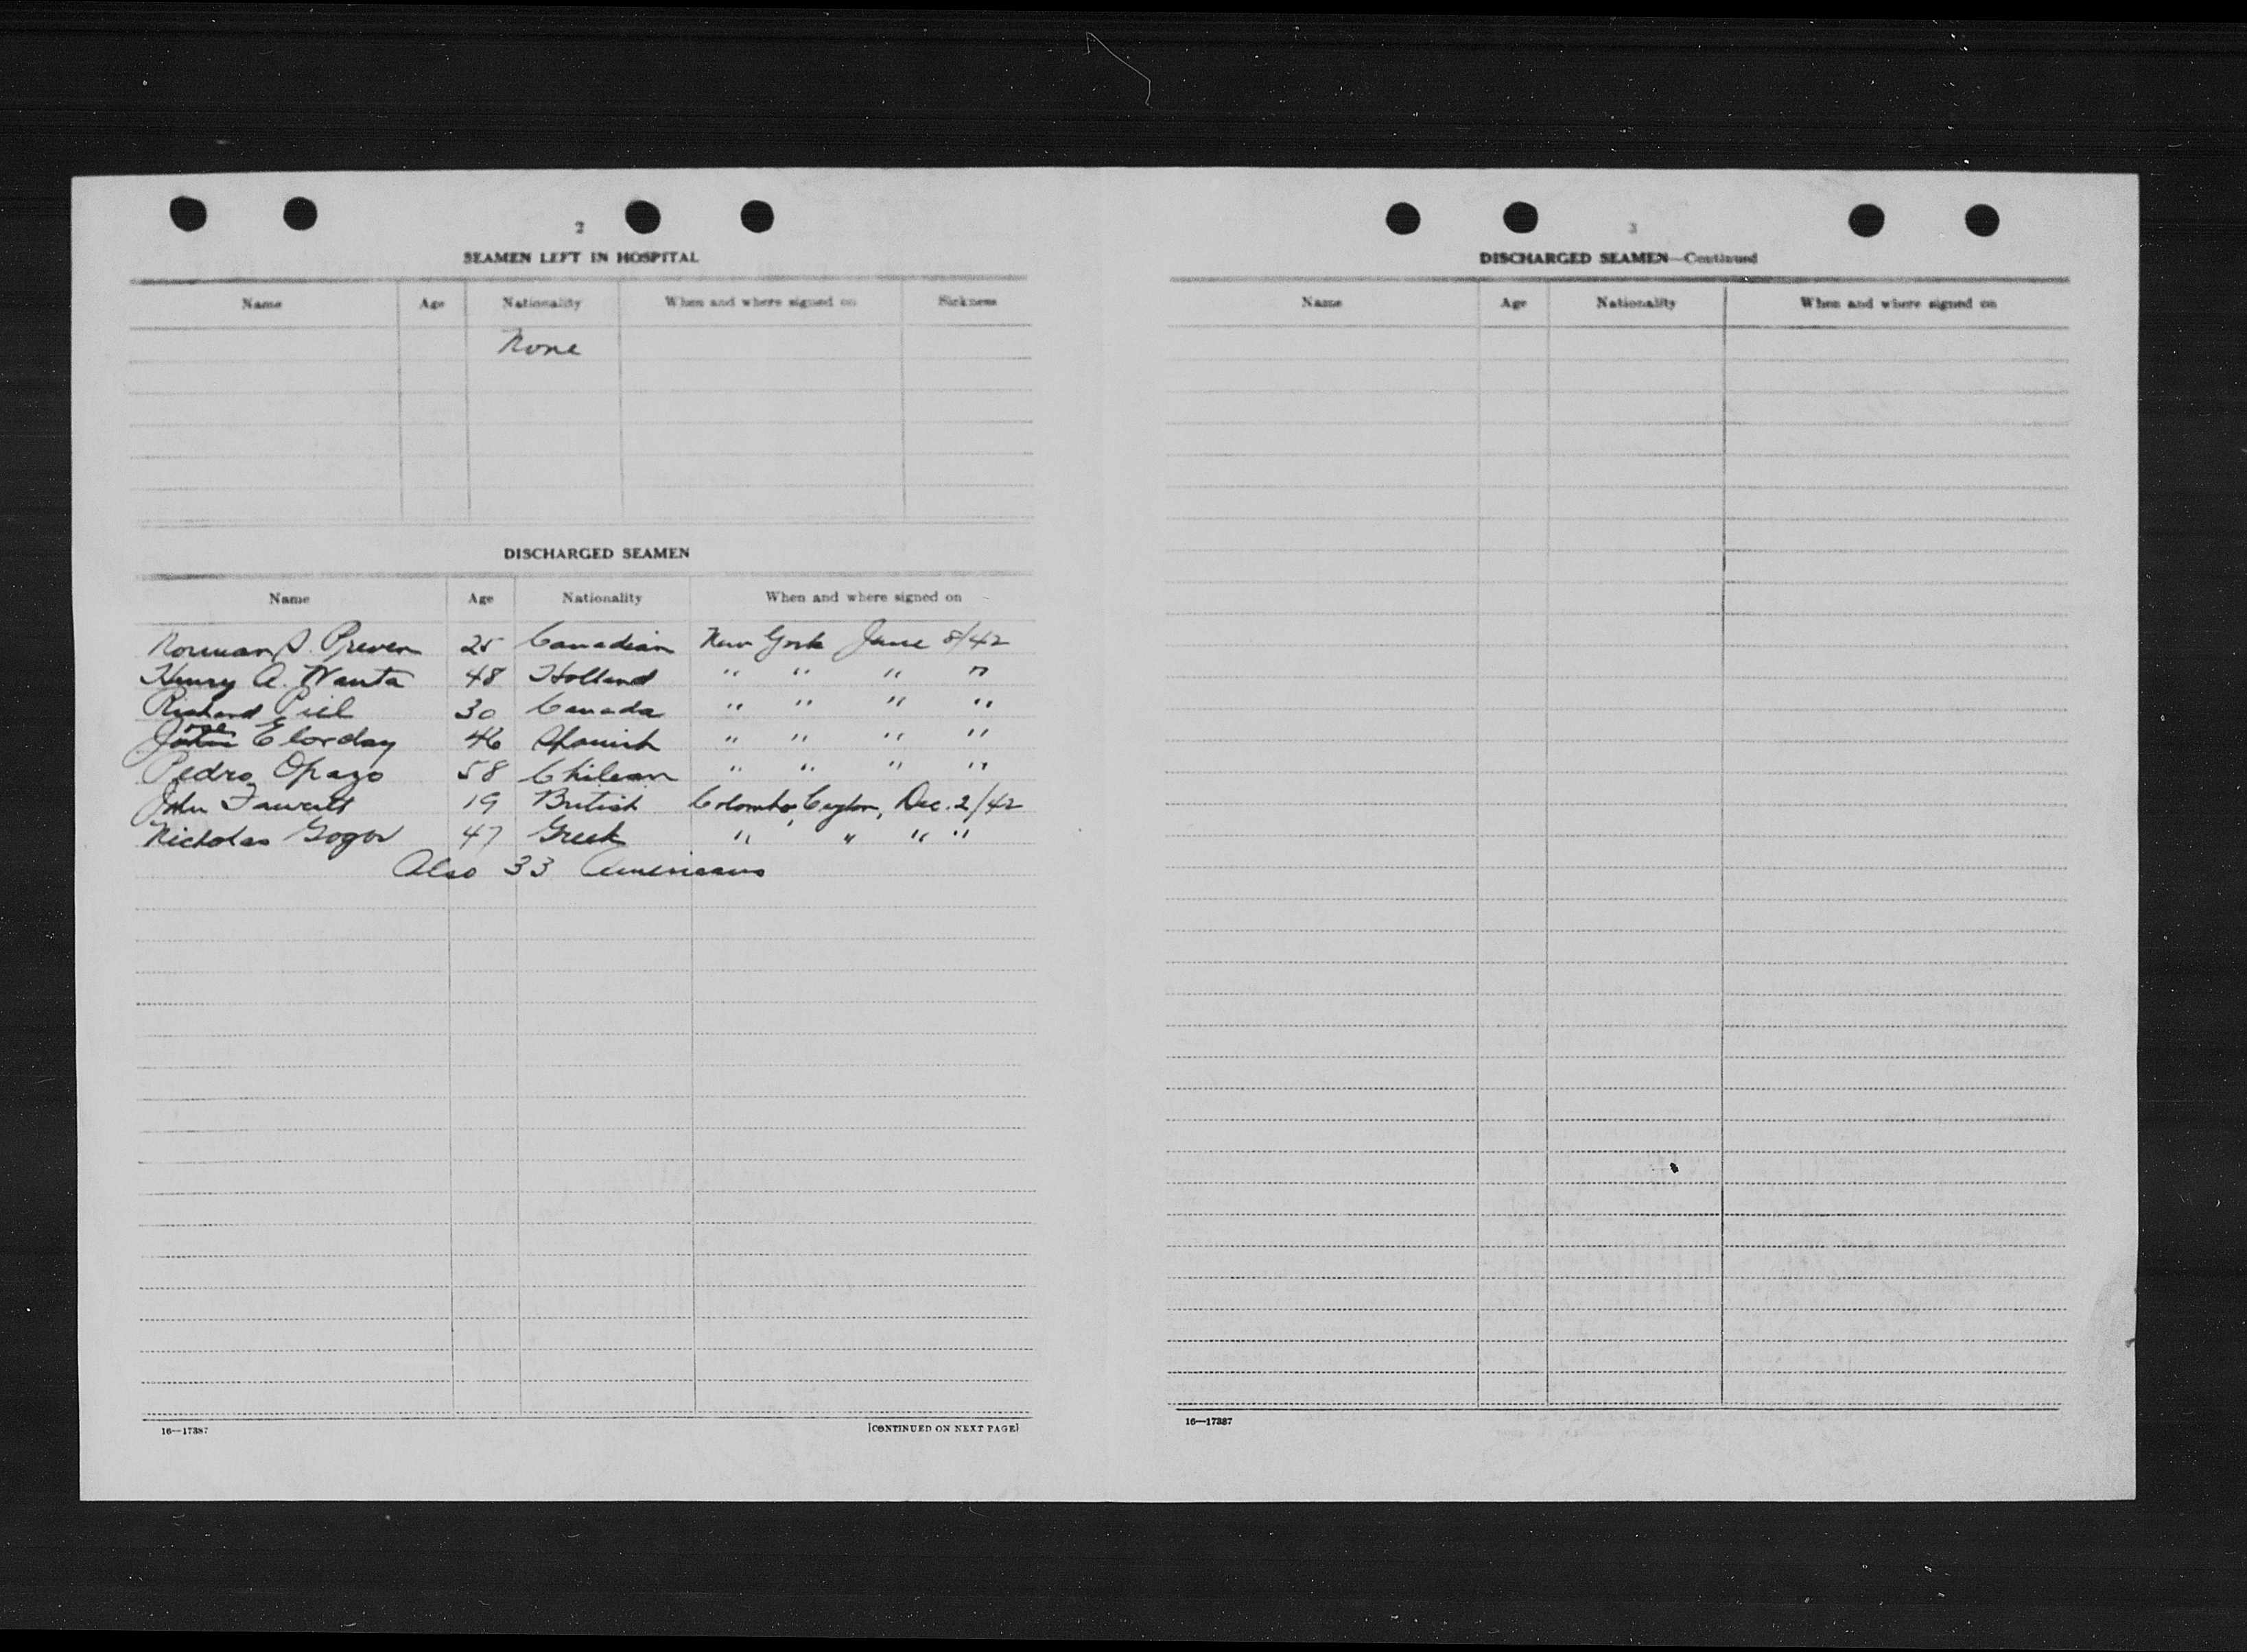 2
SEAMEN LEFT IN HOSPITAL
Name Age Nationality When and where signed on Sickness
None
DISCHARGED SEAMEN
Name Age Nationality When and where signed on
Norman S. Preven 25 Canadian New York June 8/42
Henry A. Wanta 48 Holland " " " "
Richard Piel 30 Canada " " " "
Jose Elorday 46 Spanish " " " "
Pedro Opazo 58 Chilean " " " "
John Fawcett 19 British Colombo, Ceylon, Dec. 2/42
Nicholas Gogos 47 Greek " " " "
Also 33 Americans
16—17387
[CONTINUED ON NEXT PAGE]
3
DISCHARGED SEAMEN—Continued
Name Age Nationality When and where signed on
16—17387